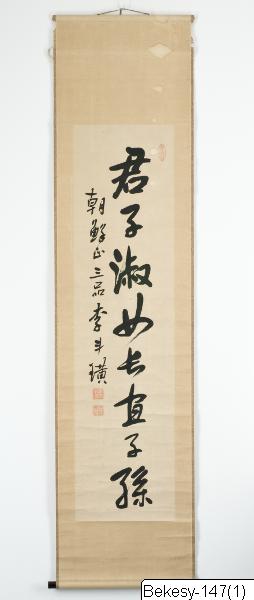 君子淑女長宜子孫
朝鮮正三品李斗璜
Bekesy-147(1)